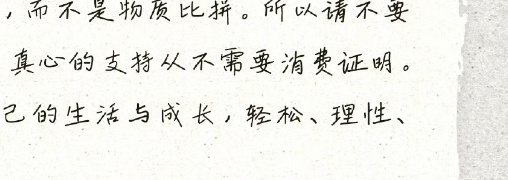 ，而不是物质比拼。所以请不要
真心的支持从不需要消费证明。
己的生活与成长，轻松、理性、